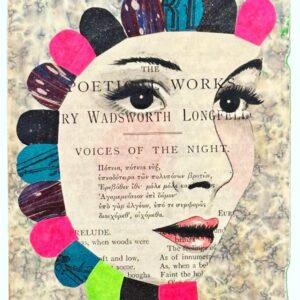 THE
POETICAL WORKS
RY WADSWORTH LONGFELL
VOICES OF THE NIGHT.
Πότνια, πότνια νύξ,
ὑπνοδότειρα τῶν πολυπόνων βροτῶν,
Ἐρεβόθεν ἴθι· μόλε μόλε
Ἀγαμεμνόνιον ἐπὶ δόμον·
ὑπὸ γὰρ ἀλγέων, ὑπό τε συμφορᾶς
διοιχόμεθ', οἰχόμεθα.
EUR
PRELUDE.
as, when woods were
The feelings
As of innumer
oft and low,
As, when a be
some,
Faint the ho
boughs